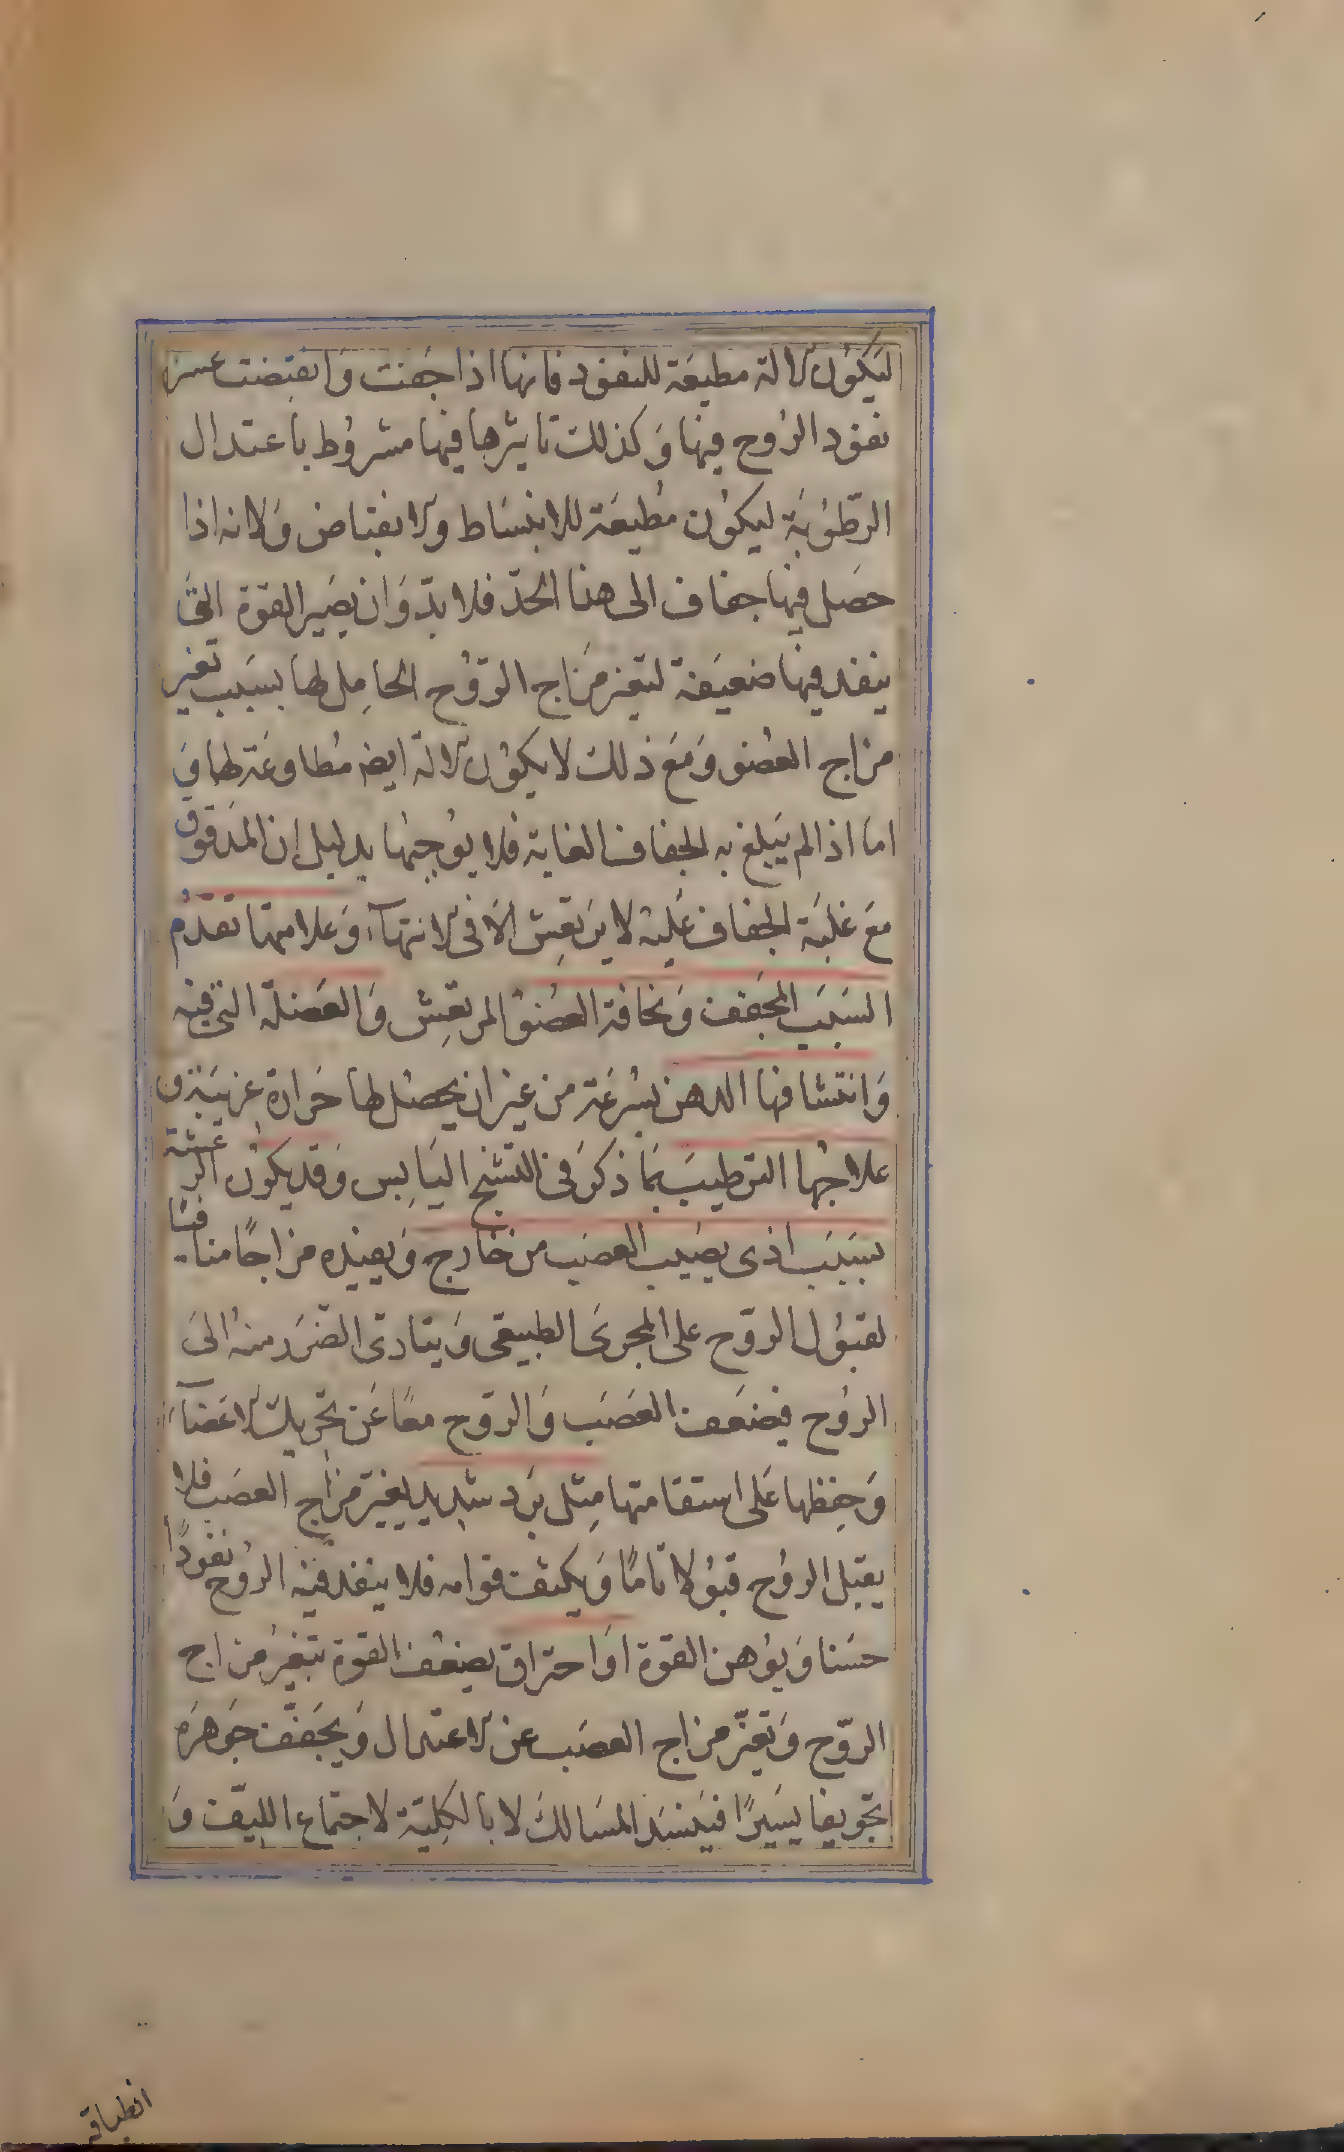 ليكون الالة مطيعة للنفوذ فانها اذا جفت وانقبضت عسر
نفوذ الروح فيها وكذلك تاثيرها فيها مشروط باعتدال
الرطوبة ليكون مطيعة للانبساط والانقباض ولانه اذا
حصل فيها جفاف الى هذا الحد فلا بد وان يصير القوة التى
ينفذ فيها ضعيفة لتغير مزاج الروح الحامل لها بسبب تغير
مزاج العضو ومع ذلك لا يكون الالة ايضا مطاوعة لها و
اما اذا لم يبلغ به الجفاف الغاية فلا يوجبها بدليل ان المدقوق
مع غلبة الجفاف عليه لا يرتعش الا فى الانتهآء وعلامتها تقدم
السبب المجفف ونحافة العضو المرتعش والعضلة التى فيه
وانتشافها الدهن بسرعة من غير ان يحصل لها حرارة غريبة و
علاجها الترطيب بما ذكر فى التشنج اليابس وقد يكون الرعشة
بسبب اذى يصيب العصب من خارج ويفيده مزاجًا منافيًا
لقبول الروح على المجرى الطبيعى ويتادى الضرر منه الى
الروح فيضعف العصب والروح معًا عن تحريك الاعضآء
وحفظها على استقامتها مثل برد شديد يغير مزاج العصب فلا
يقبل الروح قبولا تامًا ويكثف قوامه فلا ينفذ فيه الروح نفوذًا
حسنا ويوهن القوة او احتراق يضعف القوة بتغير مزاج
الروح وتغير مزاج العصب عن الاعتدال ويجفف جوهره
تجويفا يسيرًا فينسد المسالك لا بالكلية لاجتماع الليف و
انطباقه